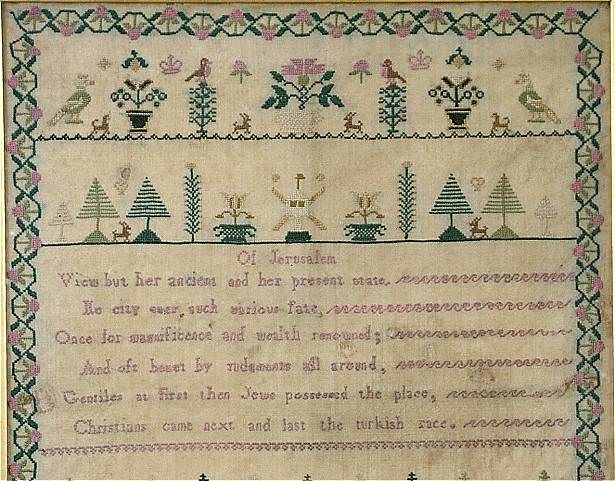 Of Jerusalem
View but her ancient and her present state
No city ever such various fate,
Once for magnificence and wealth renowned;
And oft beset by judgments all around,
Gentiles at first then Jews possessed the place,
Christians came next and last the turkish race.